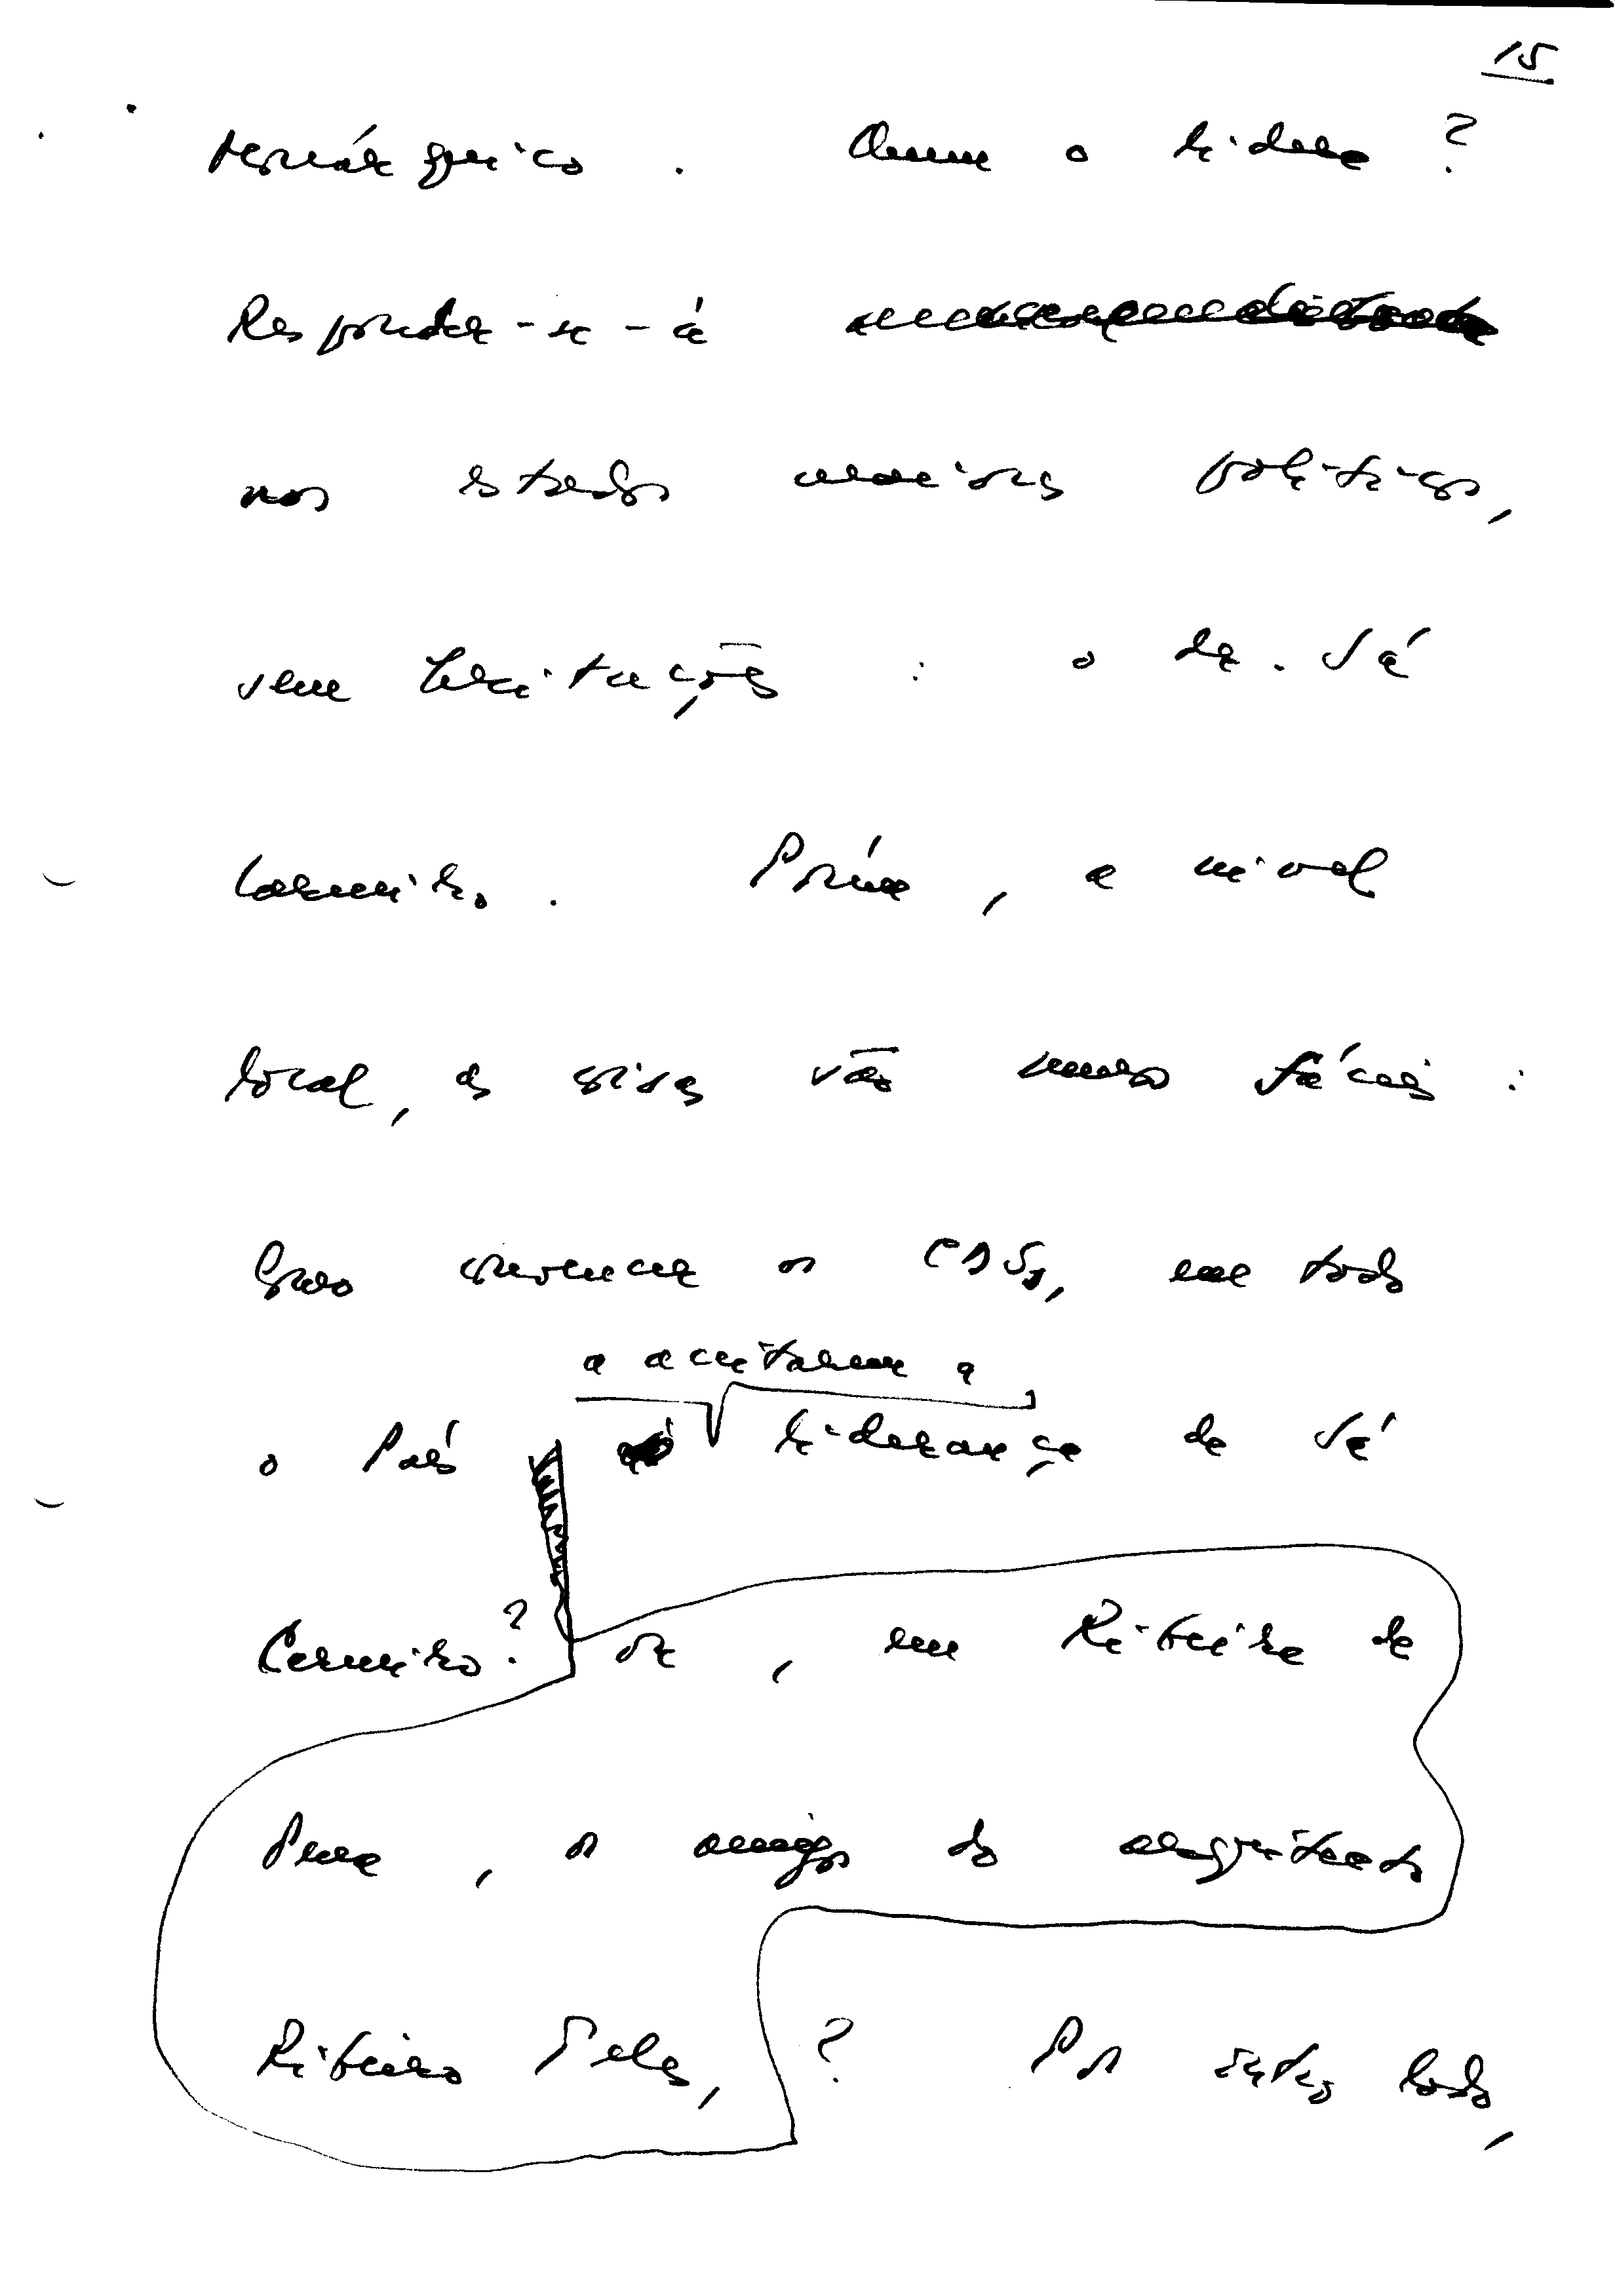 15
monárquico. Quem o lidera?
Responder-se-á
nos estados maiores políticos,
sem hesitações: o dr. Sá
Carneiro. Porém, a nível
local, as coisas são menos fáceis:
Como convencer os CDSs, em todo
a aceitarem a
o País liderança de Sá
Carneiro? or, em Ribeira de
Pena, os amigos do arquitecto
Ribeiro Teles, ? Por outro lado,